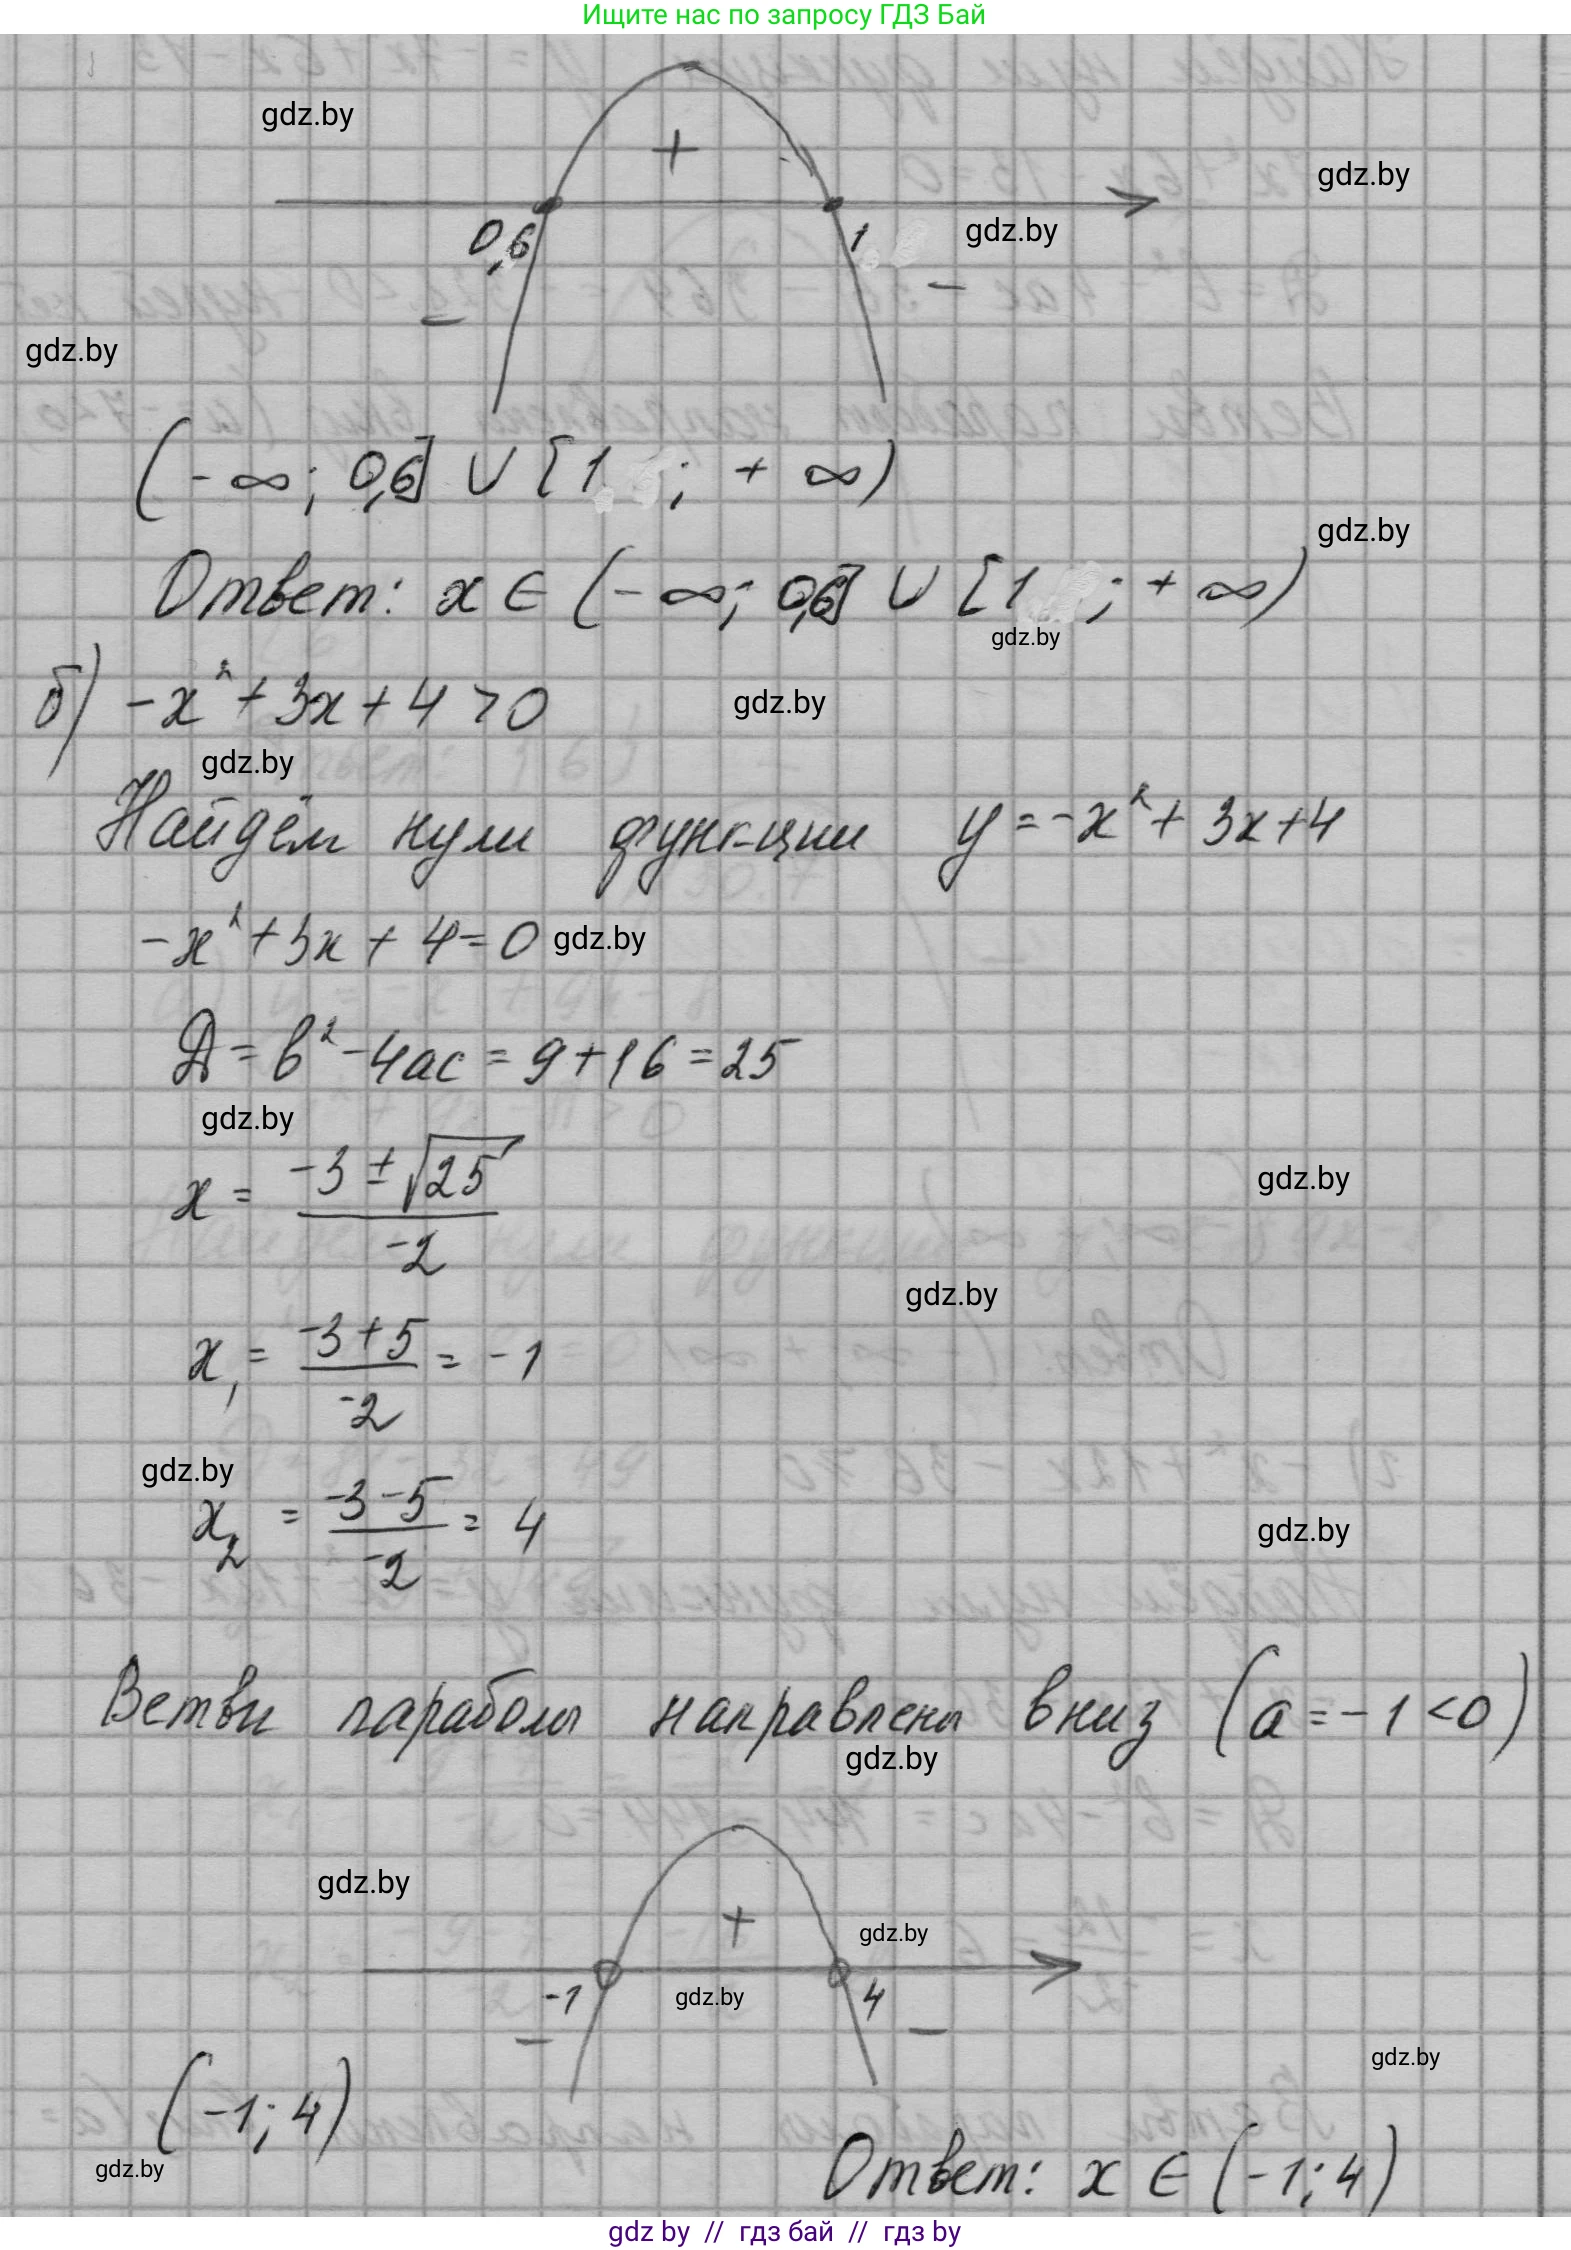 Ищите нас по запросу ГДЗ Бай
gdz.by
+
gdz.by
gdz.by
0,6
1
−
−
gdz.by
(-∞; 0,6] ∪ [1; +∞)
gdz.by
Ответ: x ∈ (-∞; 0,6] ∪ [1; +∞)
gdz.by
б) -x² + 3x + 4 > 0
gdz.by
gdz.by
Найдём нули функции y = -x² + 3x + 4
-x² + 3x + 4 = 0
gdz.by
Д = b² - 4ac = 9 + 16 = 25
gdz.by
x = (-3 ± √25) / -2
gdz.by
gdz.by
x₁ = (-3 + 5) / -2 = -1
gdz.by
x₂ = (-3 - 5) / -2 = 4
gdz.by
Ветви параболы направлены вниз (a = -1 < 0)
gdz.by
gdz.by
+
gdz.by
-1
gdz.by
4
−
−
gdz.by
(-1; 4)
gdz.by
Ответ: x ∈ (-1; 4)
gdz by // гдз бай // гдз by